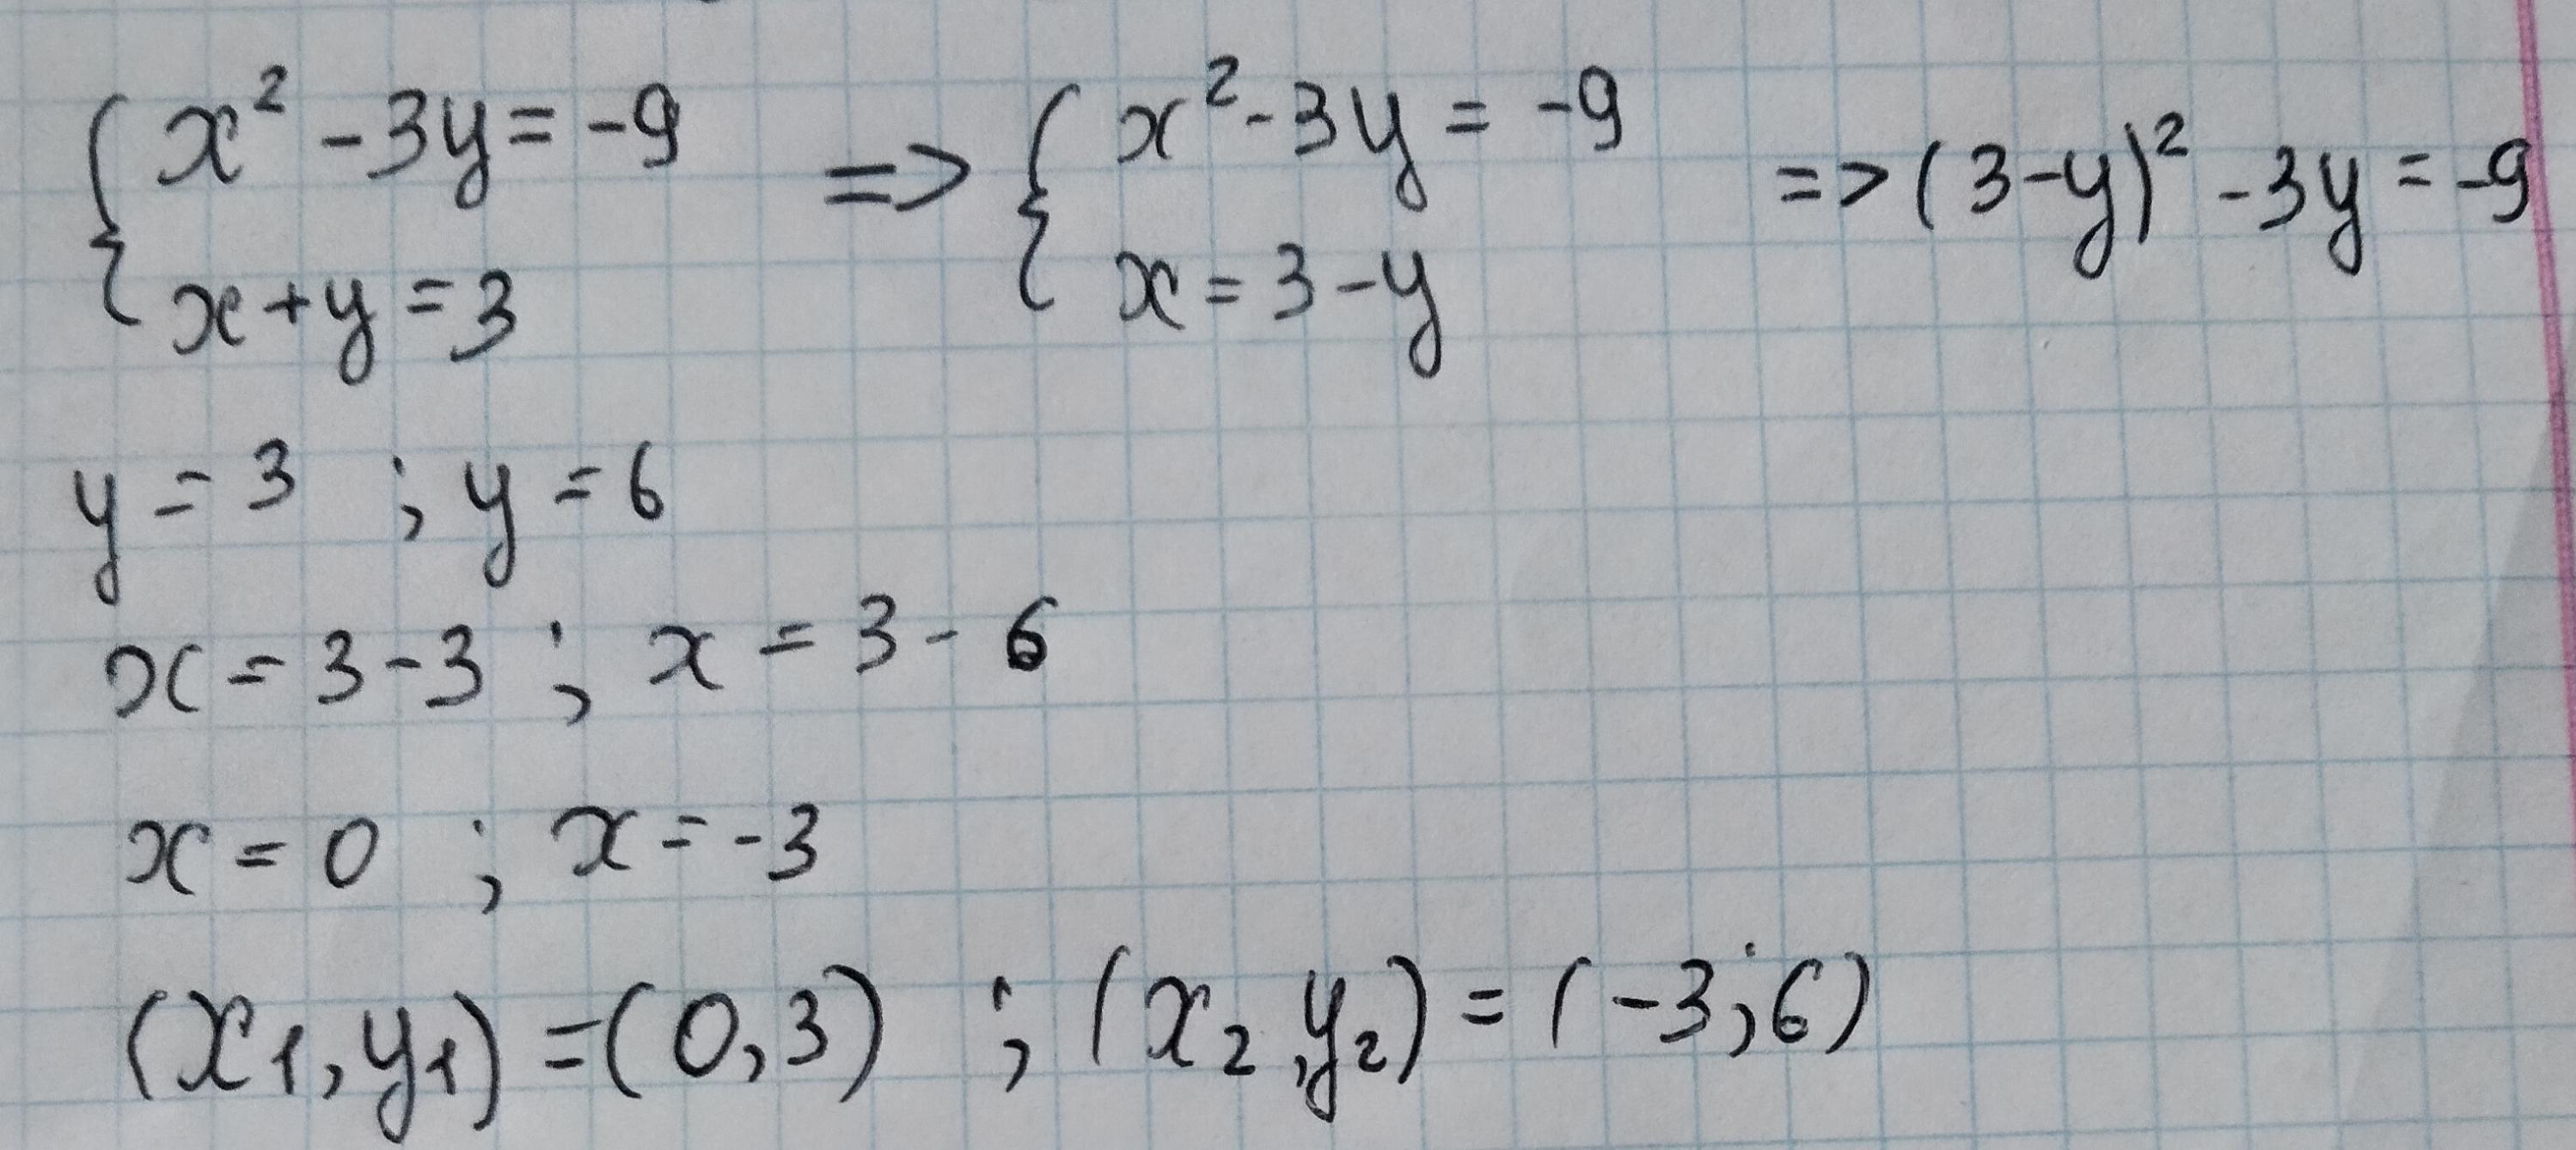 { x² - 3y = -9 => { x² - 3y = -9 => (3-y)² - 3y = -9
x + y = 3 x = 3 - y
y = 3 ; y = 6
x = 3 - 3 ; x = 3 - 6
x = 0 ; x = -3
(x₁, y₁) = (0, 3) ; (x₂, y₂) = (-3; 6)